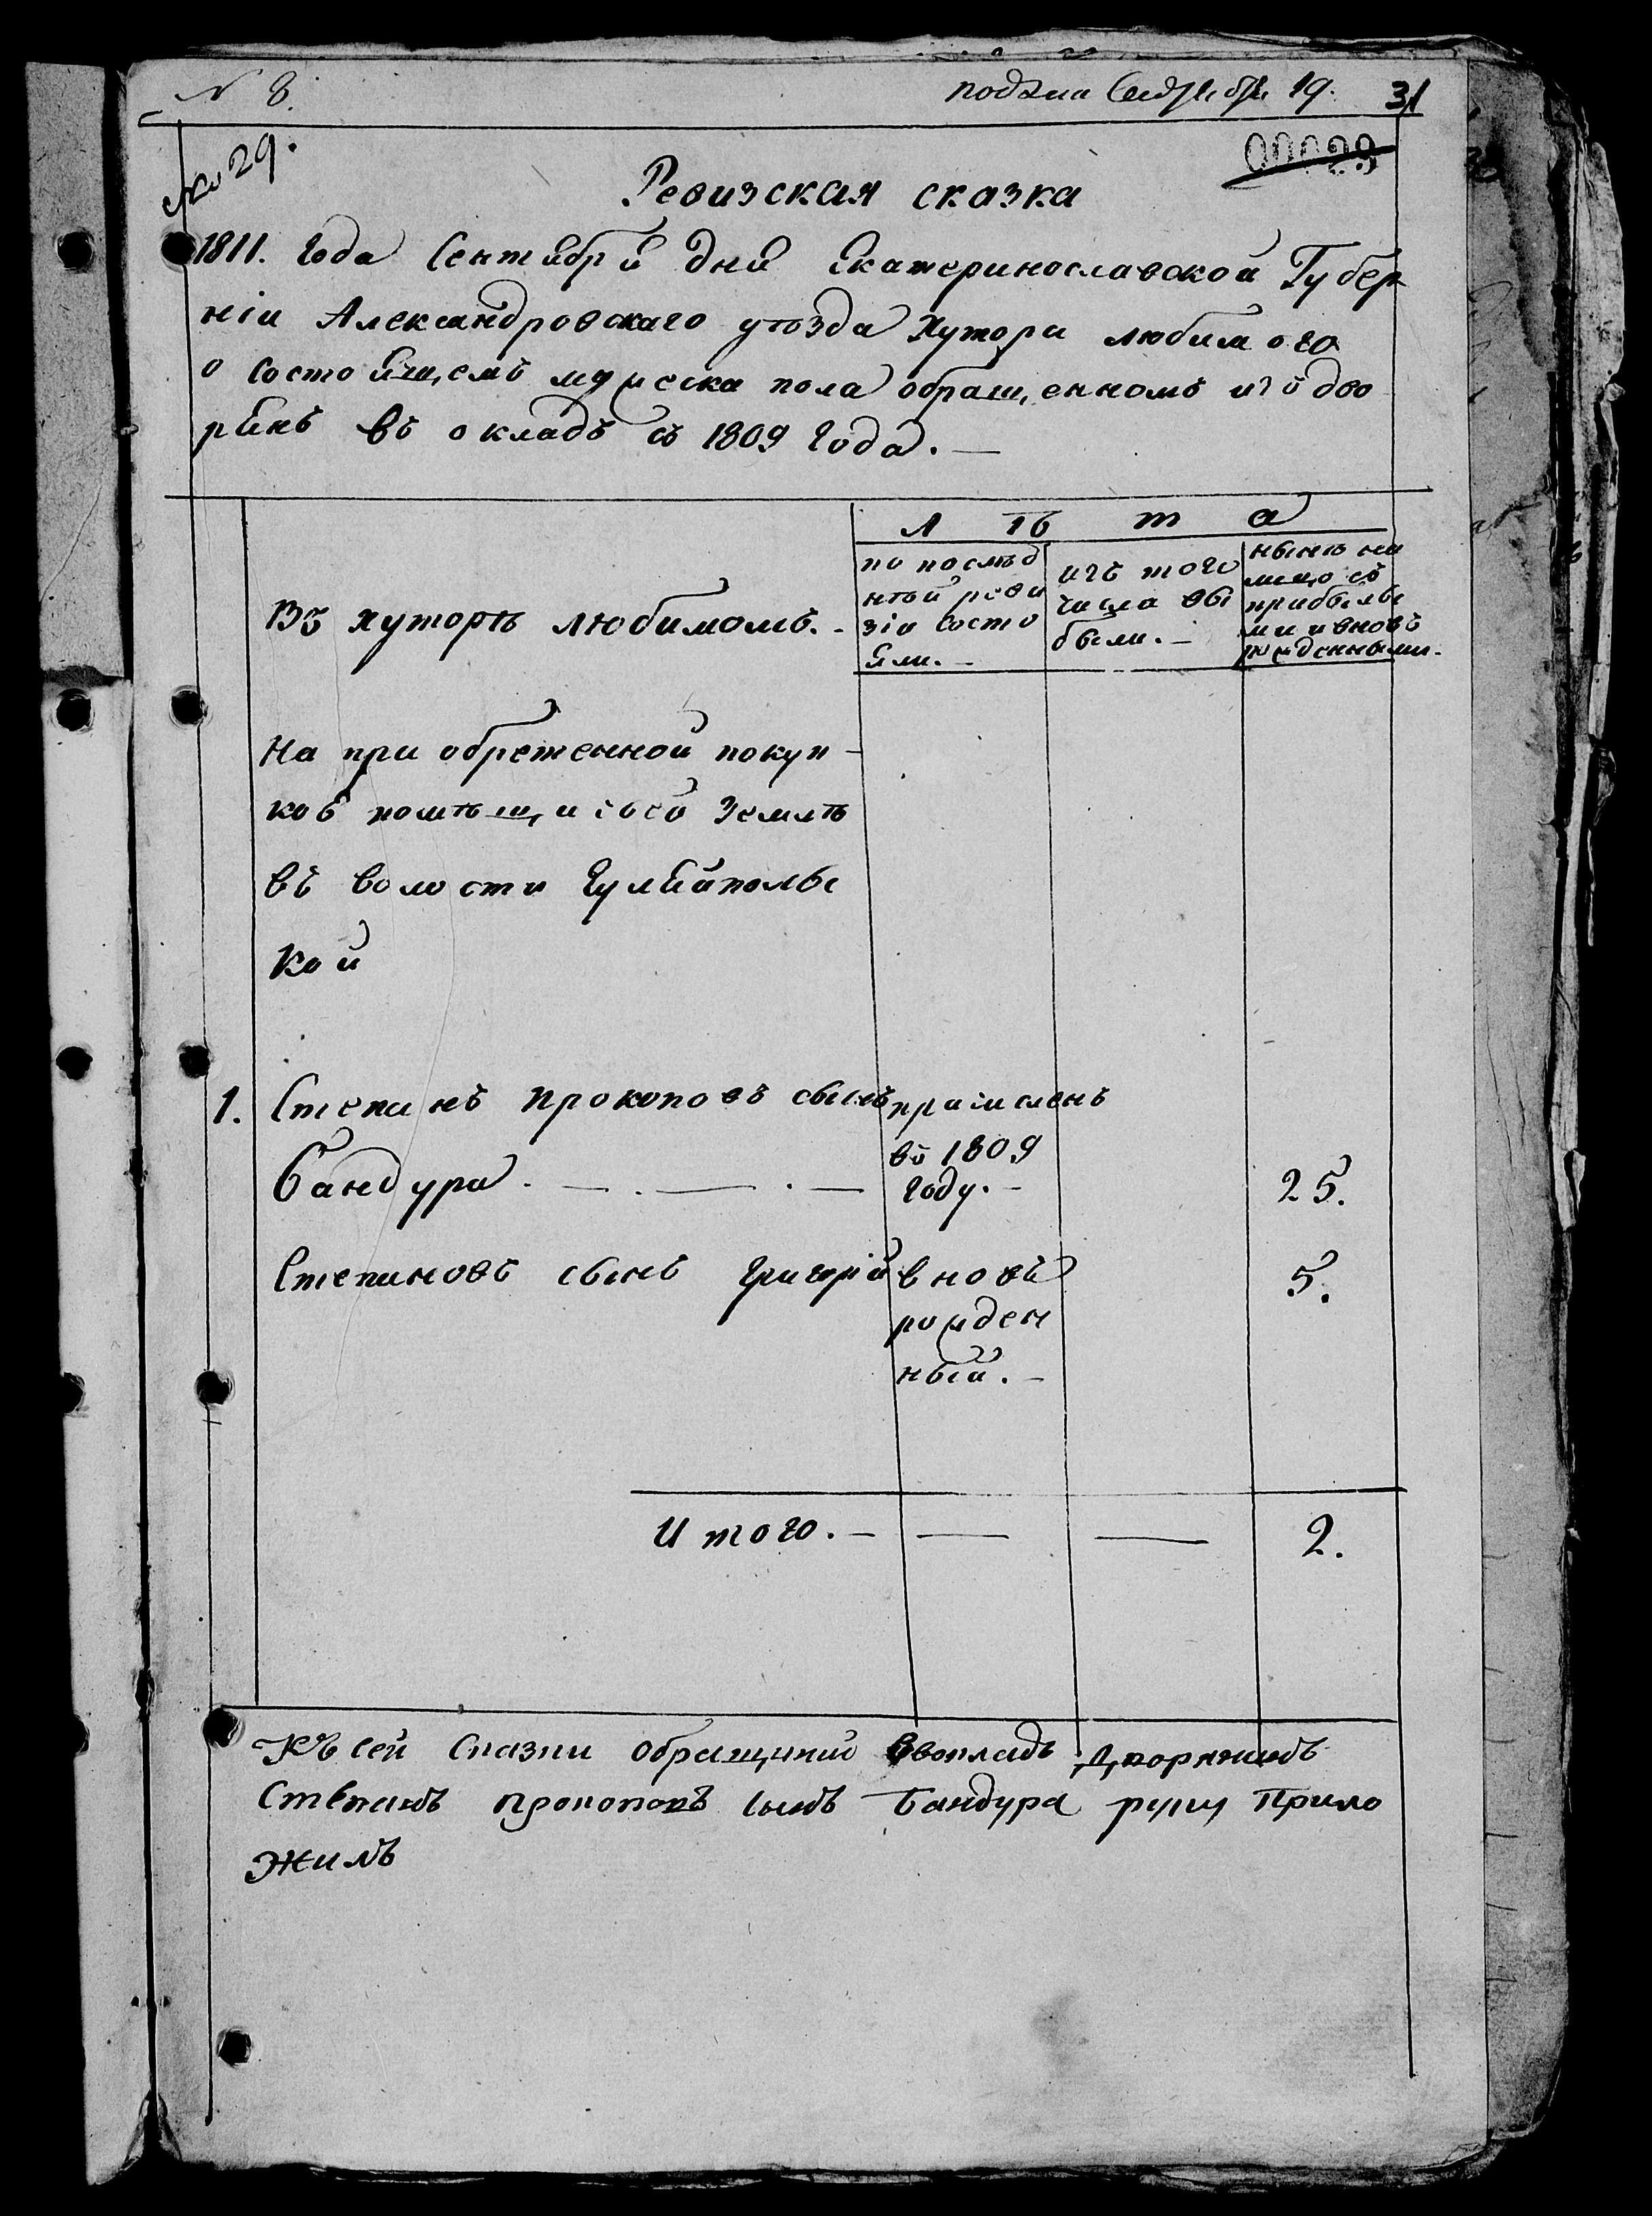 № 8.
подана Сентября 19. 31
№ 29.
00029
Ревизская сказка
1811. года Сентября дня Екатеринославской Губер
ніи Александровскаго уѣзда Хутора любимого
о состоящемъ мужеска пола обращенномъ изъ дво
рянъ въ окладъ съ 1809 года.
Лѣта
Въ хуторѣ любимомъ.
по послѣд
нѣй реви
зіи состо
яли.
изъ того
числа вы
были.
нынѣ на
лицо съ
прибылы
ми и вновь
рожденными.
На приобретенной покуп-
кою помѣщи
землѣ
въ волости Гуляйпольс
кой
1. Степанъ Прокоповъ сынъ причисленъ
въ 1809
Бандура. году. 25.
Степановъ сынъ григорій вновь 5.
рожден
ный.
Итого. — — 2.
Къ сей сказки обращиний Ввокладъ Дворянинъ
Степанъ Прокоповъ сынъ Бандура руку Прило
жилъ